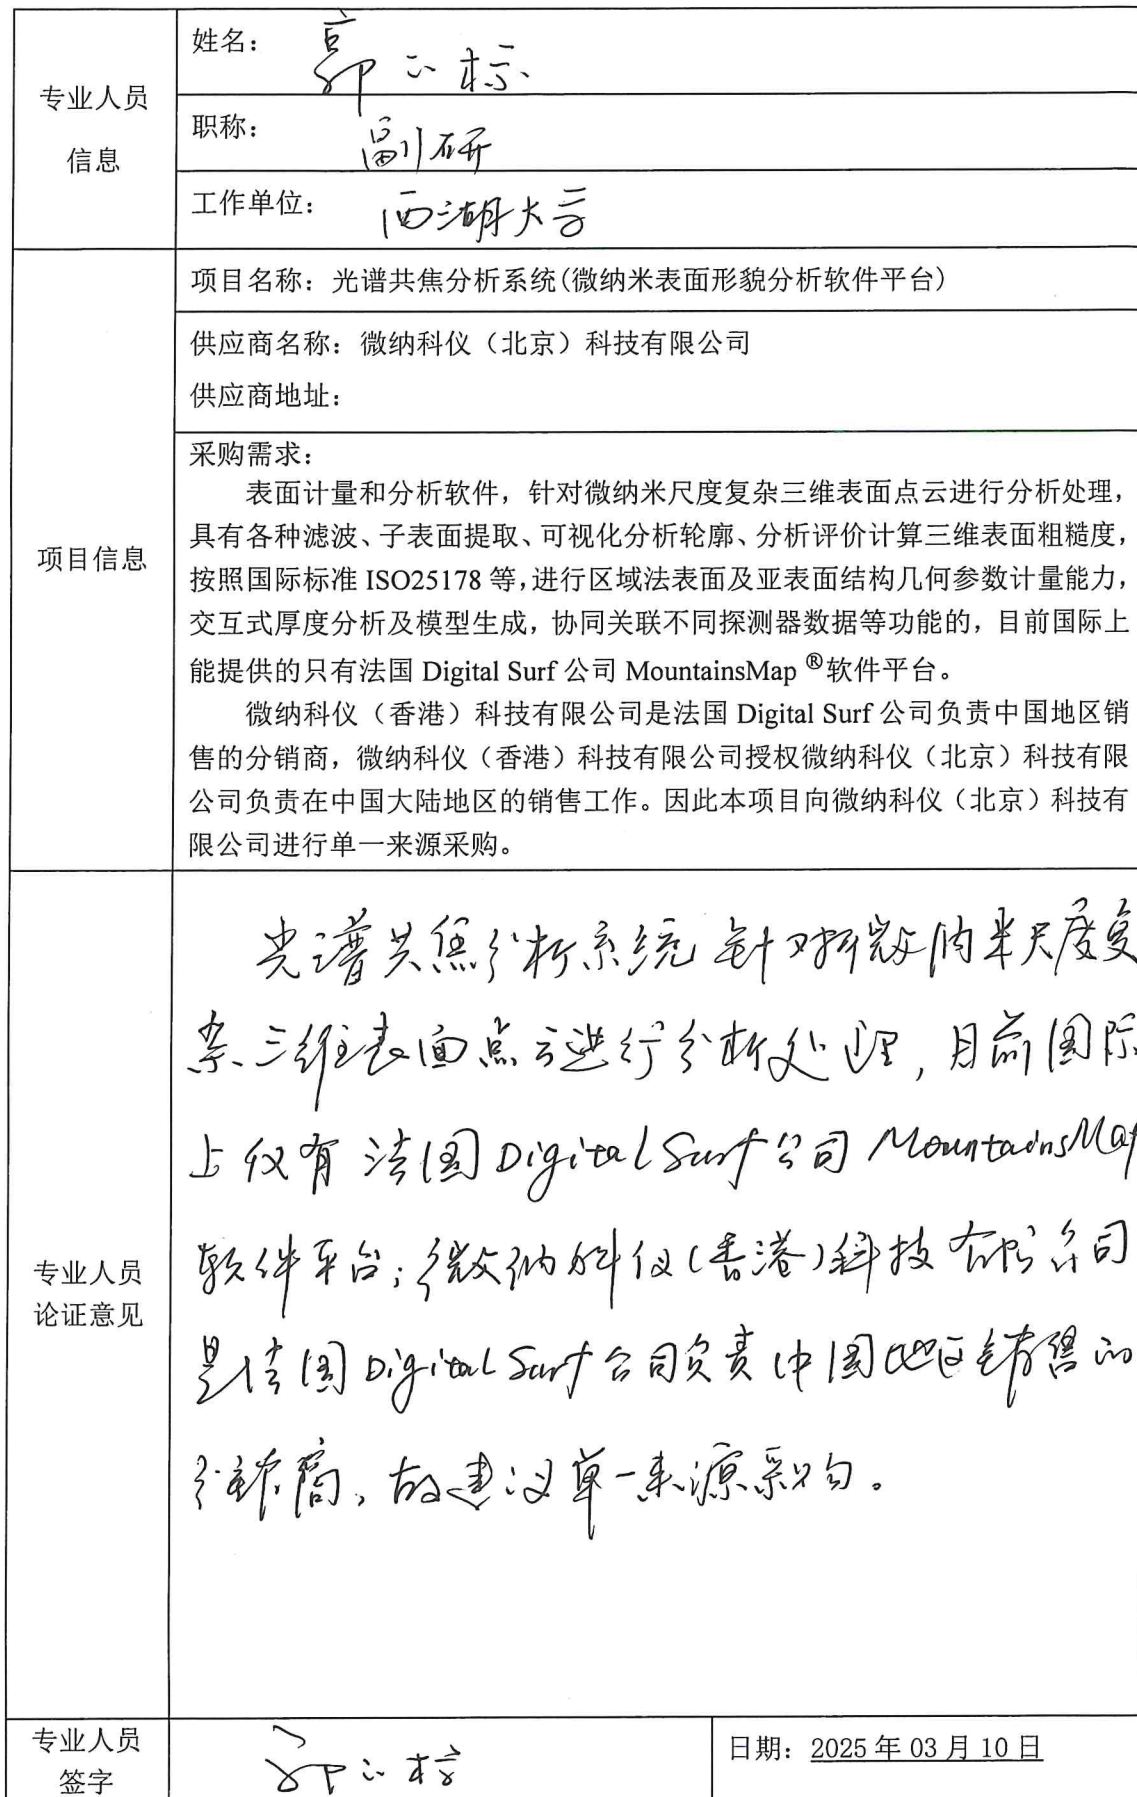 专业人员
信息
姓名：郭 标
职称：副研
工作单位：西湖大学
项目信息
项目名称：光谱共焦分析系统(微纳米表面形貌分析软件平台)
供应商名称：微纳科仪（北京）科技有限公司
供应商地址：
采购需求：
表面计量和分析软件，针对微纳米尺度复杂三维表面点云进行分析处理，
具有各种滤波、子表面提取、可视化分析轮廓、分析评价计算三维表面粗糙度，
按照国际标准 ISO25178 等，进行区域法表面及亚表面结构几何参数计量能力，
交互式厚度分析及模型生成，协同关联不同探测器数据等功能的，目前国际上
能提供的只有法国 Digital Surf 公司 MountainsMap ®软件平台。
微纳科仪（香港）科技有限公司是法国 Digital Surf 公司负责中国地区销
售的分销商，微纳科仪（香港）科技有限公司授权微纳科仪（北京）科技有限
公司负责在中国大陆地区的销售工作。因此本项目向微纳科仪（北京）科技有
限公司进行单一来源采购。
专业人员
论证意见
光谱共焦分析系统针对微纳米尺度复
杂三维表面点云进行分析处理，目前国际
上仅有法国Digital Surf公司MountainsMap
软件平台；微纳科仪(香港)科技有限公司
是法国Digital Surf公司负责中国地区销售的
分销商，故建议单一来源采购。
专业人员
签字
郭 标
日期：2025 年 03 月 10 日